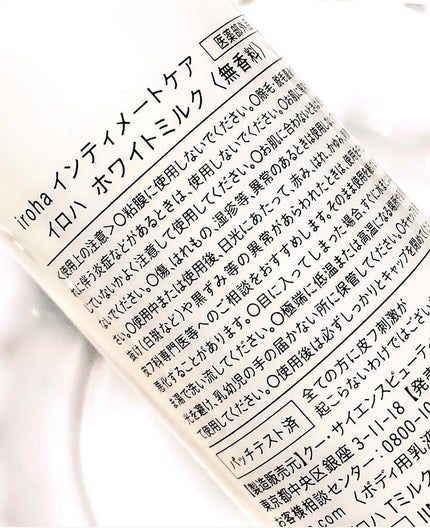 医薬部外
iroha インティメートケア
イロハ ホワイトミルク〈無香料〉
〈使用上の注意〉○粘膜に使用しないでください。○除毛・
れに伴う炎症などがあるときは、使用しないでください。○お肌に
していないかよく注意して使用してください。○お肌に合わないときは
ないでください。○傷、はれもの、湿疹等、異常のあるときは使用し
さい。○使用中または使用後、日光にあたって、赤み、はれ、かゆみ、刺
抜け(白斑など)や黒ずみ等の異常があらわれたときは、使用を
皮フ科専門医等へのご相談をおすすめします。そのまま使用を
悪化することがあります。○目に入ってしまった場合、すぐに水
ま湯で洗い流してください。○極端に低温または高温になる場所
光を避け、乳幼児の手の届かない所に保管してください。
て使用してください。○使用後は必ずしっかりとキャップを閉め
パッチテスト済
全ての方に皮フ刺激が
起こらないわけではござい
【製造販売元】クー・サイエンスビューティ
東京都中央区銀座 3-11-18【発
お客様相談センター：0800-10
.com〈ボディ用乳液
ハ Tミルク